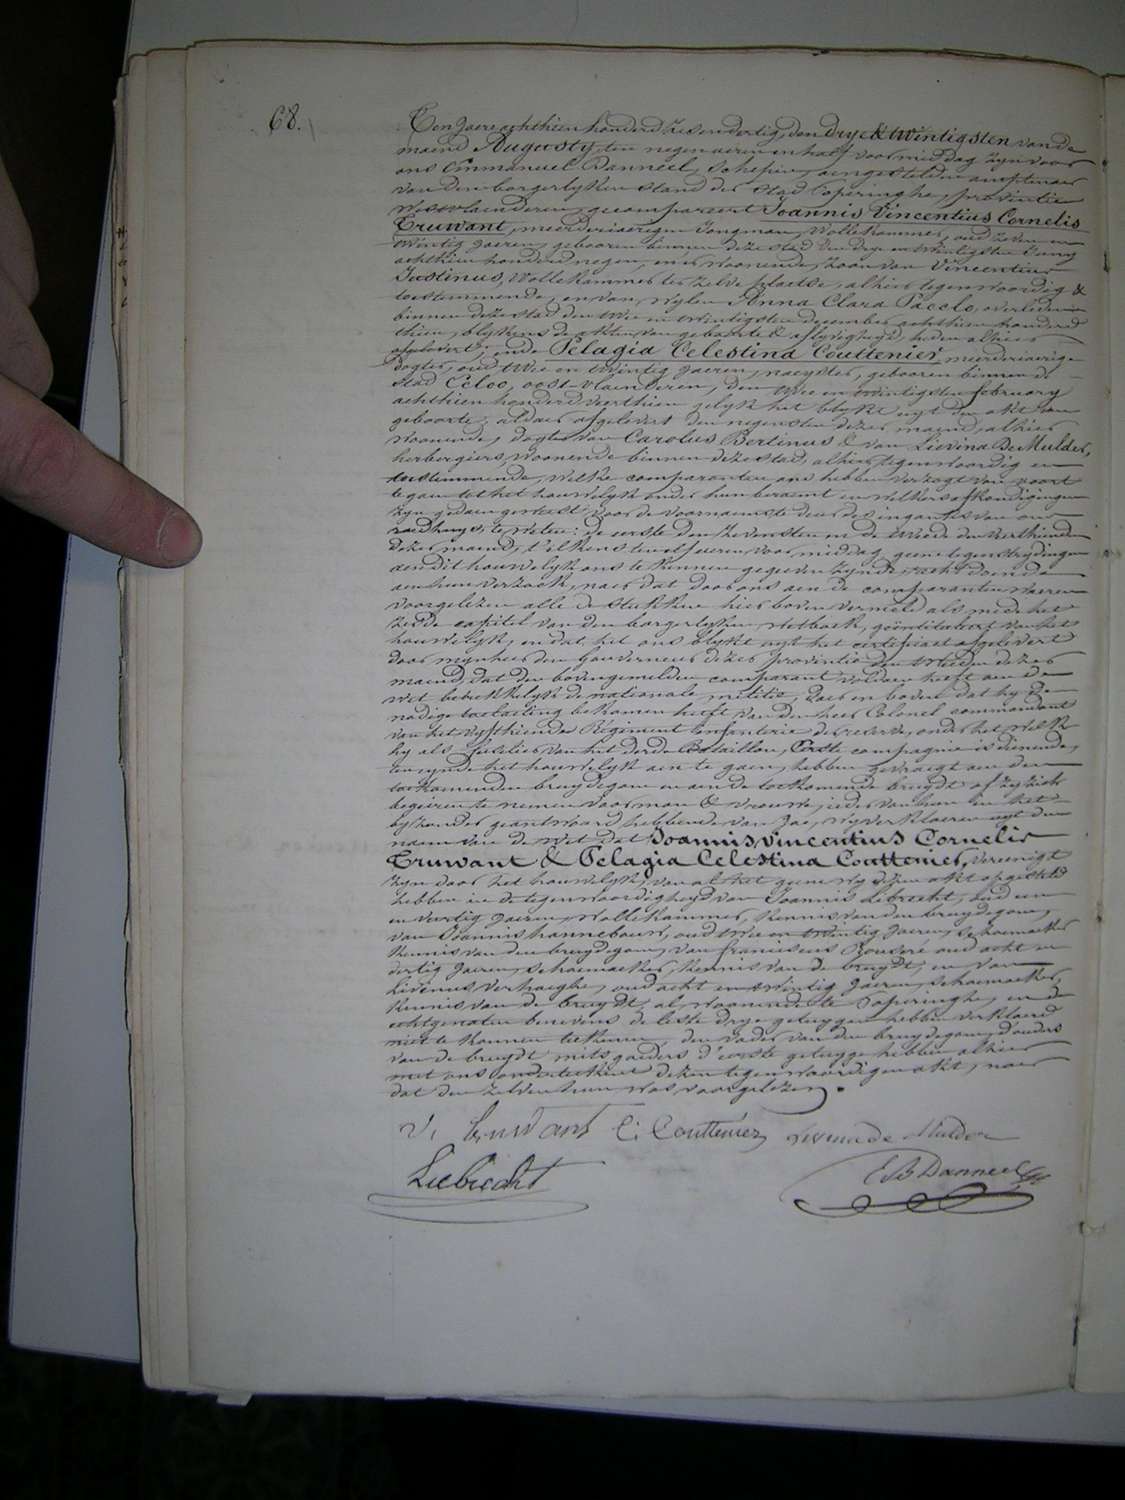 68.
Ten Jaere achthien honderd zes en dertig, den drye & twintigsten van de
maend Augusty, ten negen ueren en half voormiddag, zyn voor
ons Emmanuel Danneel, Schepen, aengestelden amptenaer
van den borgerlyken stand der stad Poperinghe, provintie
Westvlaenderen, gecompareert Joannis Vincentius Cornelis
Truwant, meerderjaerigen Jongman, Wollekammer, oud zeven en
twintig Jaeren, gebooren binnen deze stad den drye en twintigsten Juny
achthien honderd negen, en er woonende, zoon van Vincentius
Justinus, Wollekammer ter zelve plaetse, alhier tegenwoordig &
toestemmende, en van wylen Anna Clara Pacolo, overleden
binnen deze stad den twee en twintigsten december achthien honderd
thien, blykens de akten van geboorte & aflyvigheyd, heden alhier
afgelevert; ende Pelagia Celestina Couttenier, meerderjaerige
dogter, oud twee en twintig Jaeren, naeyster, gebooren binnen de
stad Eeloo, oost-vlaenderen, den twee en twintigsten february
achthien honderd veerthien gelyk het blykt uyt den akt van
geboorte, aldaer afgelevert den negensten dezer maend, alhier
woonende, dogter van Carolus Bertinus & van Lievina De Mulder,
herbergiers, woonende binnen deze stad, alhier tegenwoordig en
toestemmende, welke comparanten ons hebben verzogt van voort
te gaen tot het houwelyk onder hun beraemt en welkers afkondigingen
zyn gedaen geweest voor de voornaemste deure des ingangs van ons
raedhuys, te weten: de eerste den zevensten en de tweede den veerthienden
dezer maend, t'elkens ten elf ueren voor middag, geene tegenstrydingen
aen dit houwelyk ons te kennen gegeven zynde, recht doende
aen hun verzoek, naer dat door ons aen de comparanten waeren
voorgelezen alle de stukken hier boven vermeld als mede het
zesde capitel van den borgerlyken wetboek, geïntituleert van het
houwelyk, en dat het ons blykt uyt het certificaet afgelevert
door mynheer den Gouverneur dezer provintie den derden dezer
maend, dat den bovengemelden comparant voldaen heeft aen de
wet betrekkelyk de nationale militie, daer en boven dat hy de
nodige toelaeting bekomen heeft van den heer Colonel commandant
van het vyfthiende Régiment infanterie de reserve, onder het welk
hy als fuselier van het derde Bataillon, Eerste compagnie is dienende,
ten eynde het houwelyk aen te gaen, hebben gevraegt aen den
toekomenden bruydegom en aen de toekomende bruydt of zy zich
begeiren te nemen voor man & vrouwe, ieder van hun in het
byzonder geantwoord hebbende van Jae, wy verklaeren uyt den
naem van de wet dat Joannis, Vincentius Cornelis
Truwant & Pelagia Celestina Couttenier, vereenigt
zyn door het houwelyk, van al het geene wy dezen akt opgestelt
hebben in de tegenwoordigheyd van Joannis Liebrecht, oud een
en veertig Jaeren, wollekammer, kennis van den bruydegom,
van Joannis hannebouw, oud twee en twintig Jaeren, schoemaeker
kennis van den bruydegom, van franciscus Rouseré oud acht en
dertig Jaeren, schoemaeker, kennis van de bruydt, en van
Livinus Verhaeghe, oud acht en twintig Jaeren, schoemaeker,
kennis van de bruydt, al woonende te Poperinghe, en de
echtgenoten benevens de leste drye getuygen hebben verklaerd
niet te konnen teekenen, den vader van den bruydegom, d'ouders
van de bruydt mitsgaeders d'eerste getuyge hebben alhier
met ons onderteekent dezen tegenwoordigen akt, naer
dat den zelven hun was voorgelezen.
V. Truwant C: Couttenier Livina de Mulder
Liebrecht E B Danneel